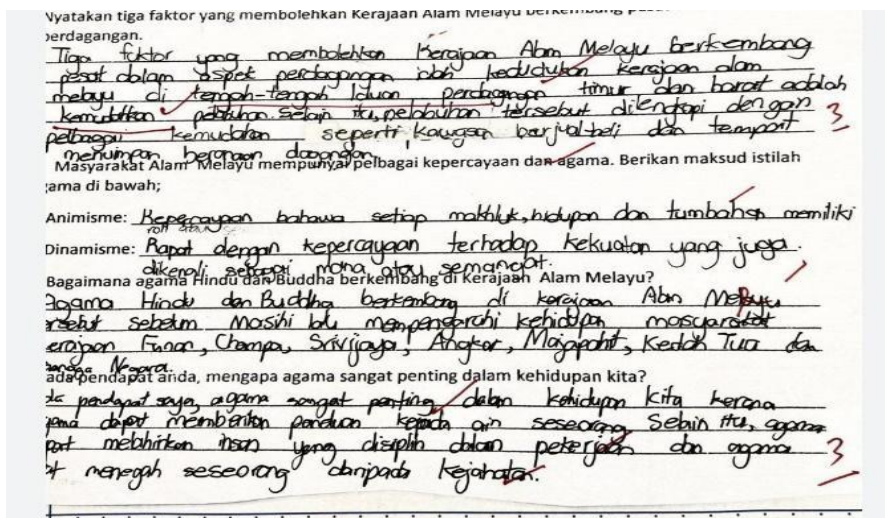 Nyatakan tiga faktor yang membolehkan Kerajaan Alam Melayu berkembang
perdagangan.
Tiga faktor yang membolehkan Kerajaan Alam Melayu berkembang
pesat dalam aspek perdagangan ialah kedudukan kerajaan alam
melayu di tengah-tengah laluan perdagangan timur dan barat adalah
kemudahan pelabuhan. Selain itu, pelabuhan tersebut dilengkapi dengan 3
pelbagai kemudahan seperti kawasan berjual-beli dan tempat
menyimpan barangan dagangan.
Masyarakat Alam Melayu mempunyai pelbagai kepercayaan dan agama. Berikan maksud istilah
gama di bawah;
Animisme: Kepercayaan bahawa setiap makhluk, hidupan dan tumbahan memiliki
roh
Dinamisme: Rapat dengan kepercayaan terhadap kekuatan yang juga
dikenali sebagai mana atau semangat.
Bagaimana agama Hindu dan Buddha berkembang di Kerajaan Alam Melayu?
Agama Hindu dan Buddha berkembang di kerajaan Alam Melayu
ersebut sebelum Masihi lalu mempengaruhi kehidupan masyarakat
erajaan Funan, Champa, Srivijaya, Angkor, Majapahit, Kedah Tua dan
Negara.
ada pendapat anda, mengapa agama sangat penting dalam kehidupan kita?
da pendapat saya, agama sangat penting dalam kehidupan kita kerana
gama dapat memberikan panduan kepada diri seseorang. Selain itu, agama
pat melahirkan insan yang disiplin dalam pekerjaan dan agama 3
at menegah seseorang daripada kejahatan.